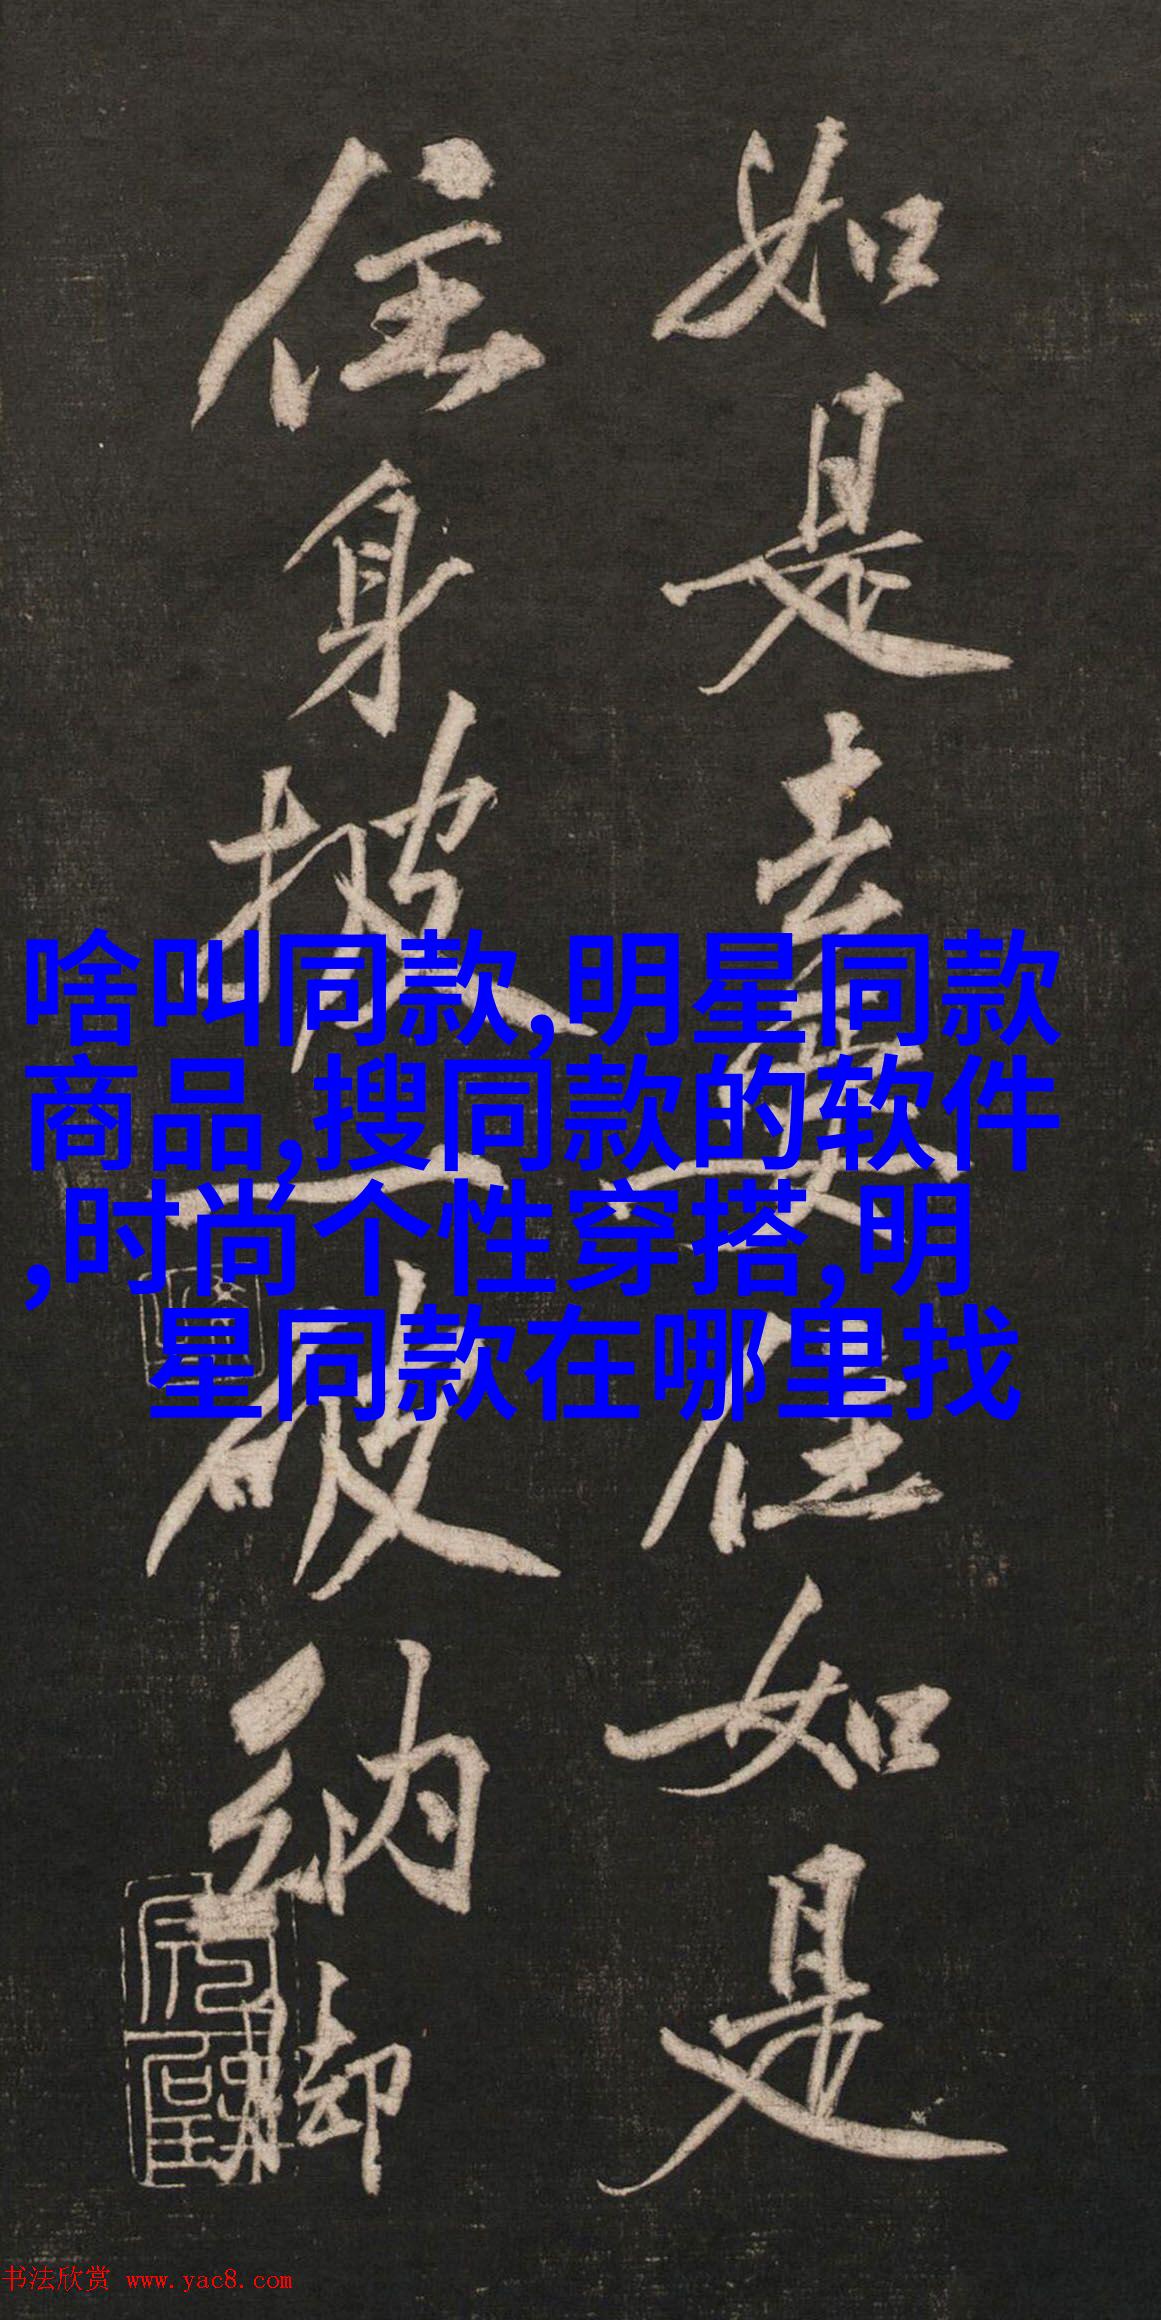 如是去要住如是
住身披一破衲脚
啥叫同款,明星同款
商品,搜同款的软件
,时尚个性穿搭,明
星同款在哪里找
书法欣赏 www.yac8.com